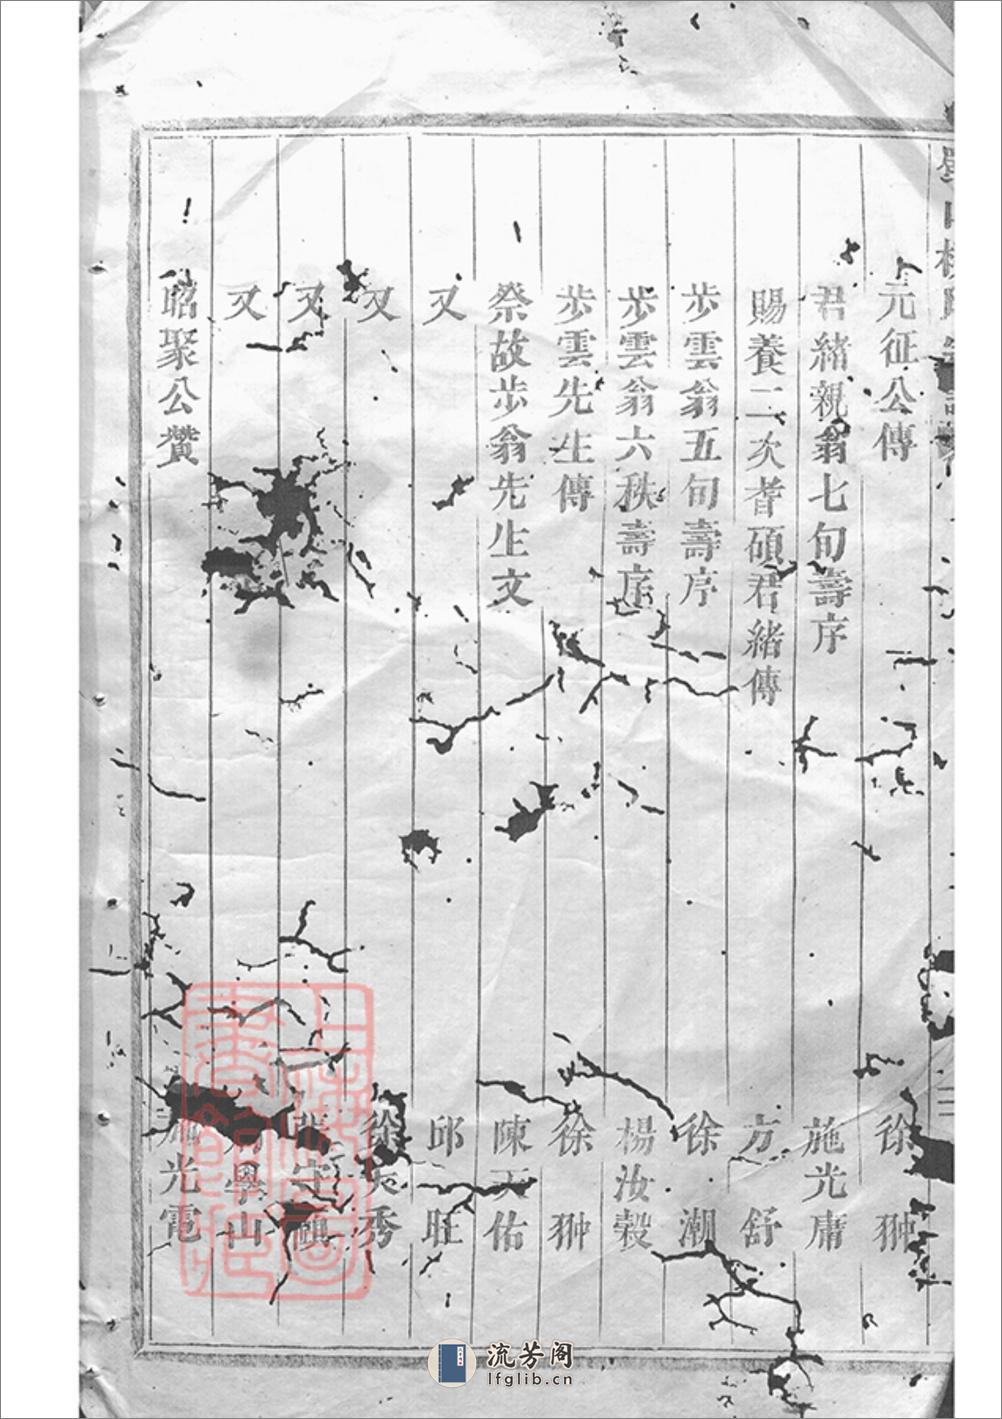 元征公傳 徐翀
君緒親翁七旬壽序 施光庸
賜養二次耆碩君緒傳 方舒
步雲翁五旬壽序 徐潮
步雲翁六秩壽序 楊汝穀
步雲先生傳 徐翀
祭故步翁先生文 陳天佑
又 邱旺
又 徐秀
又
又 學山
昭聚公贊 光電
流芳阁
lfglib.cn